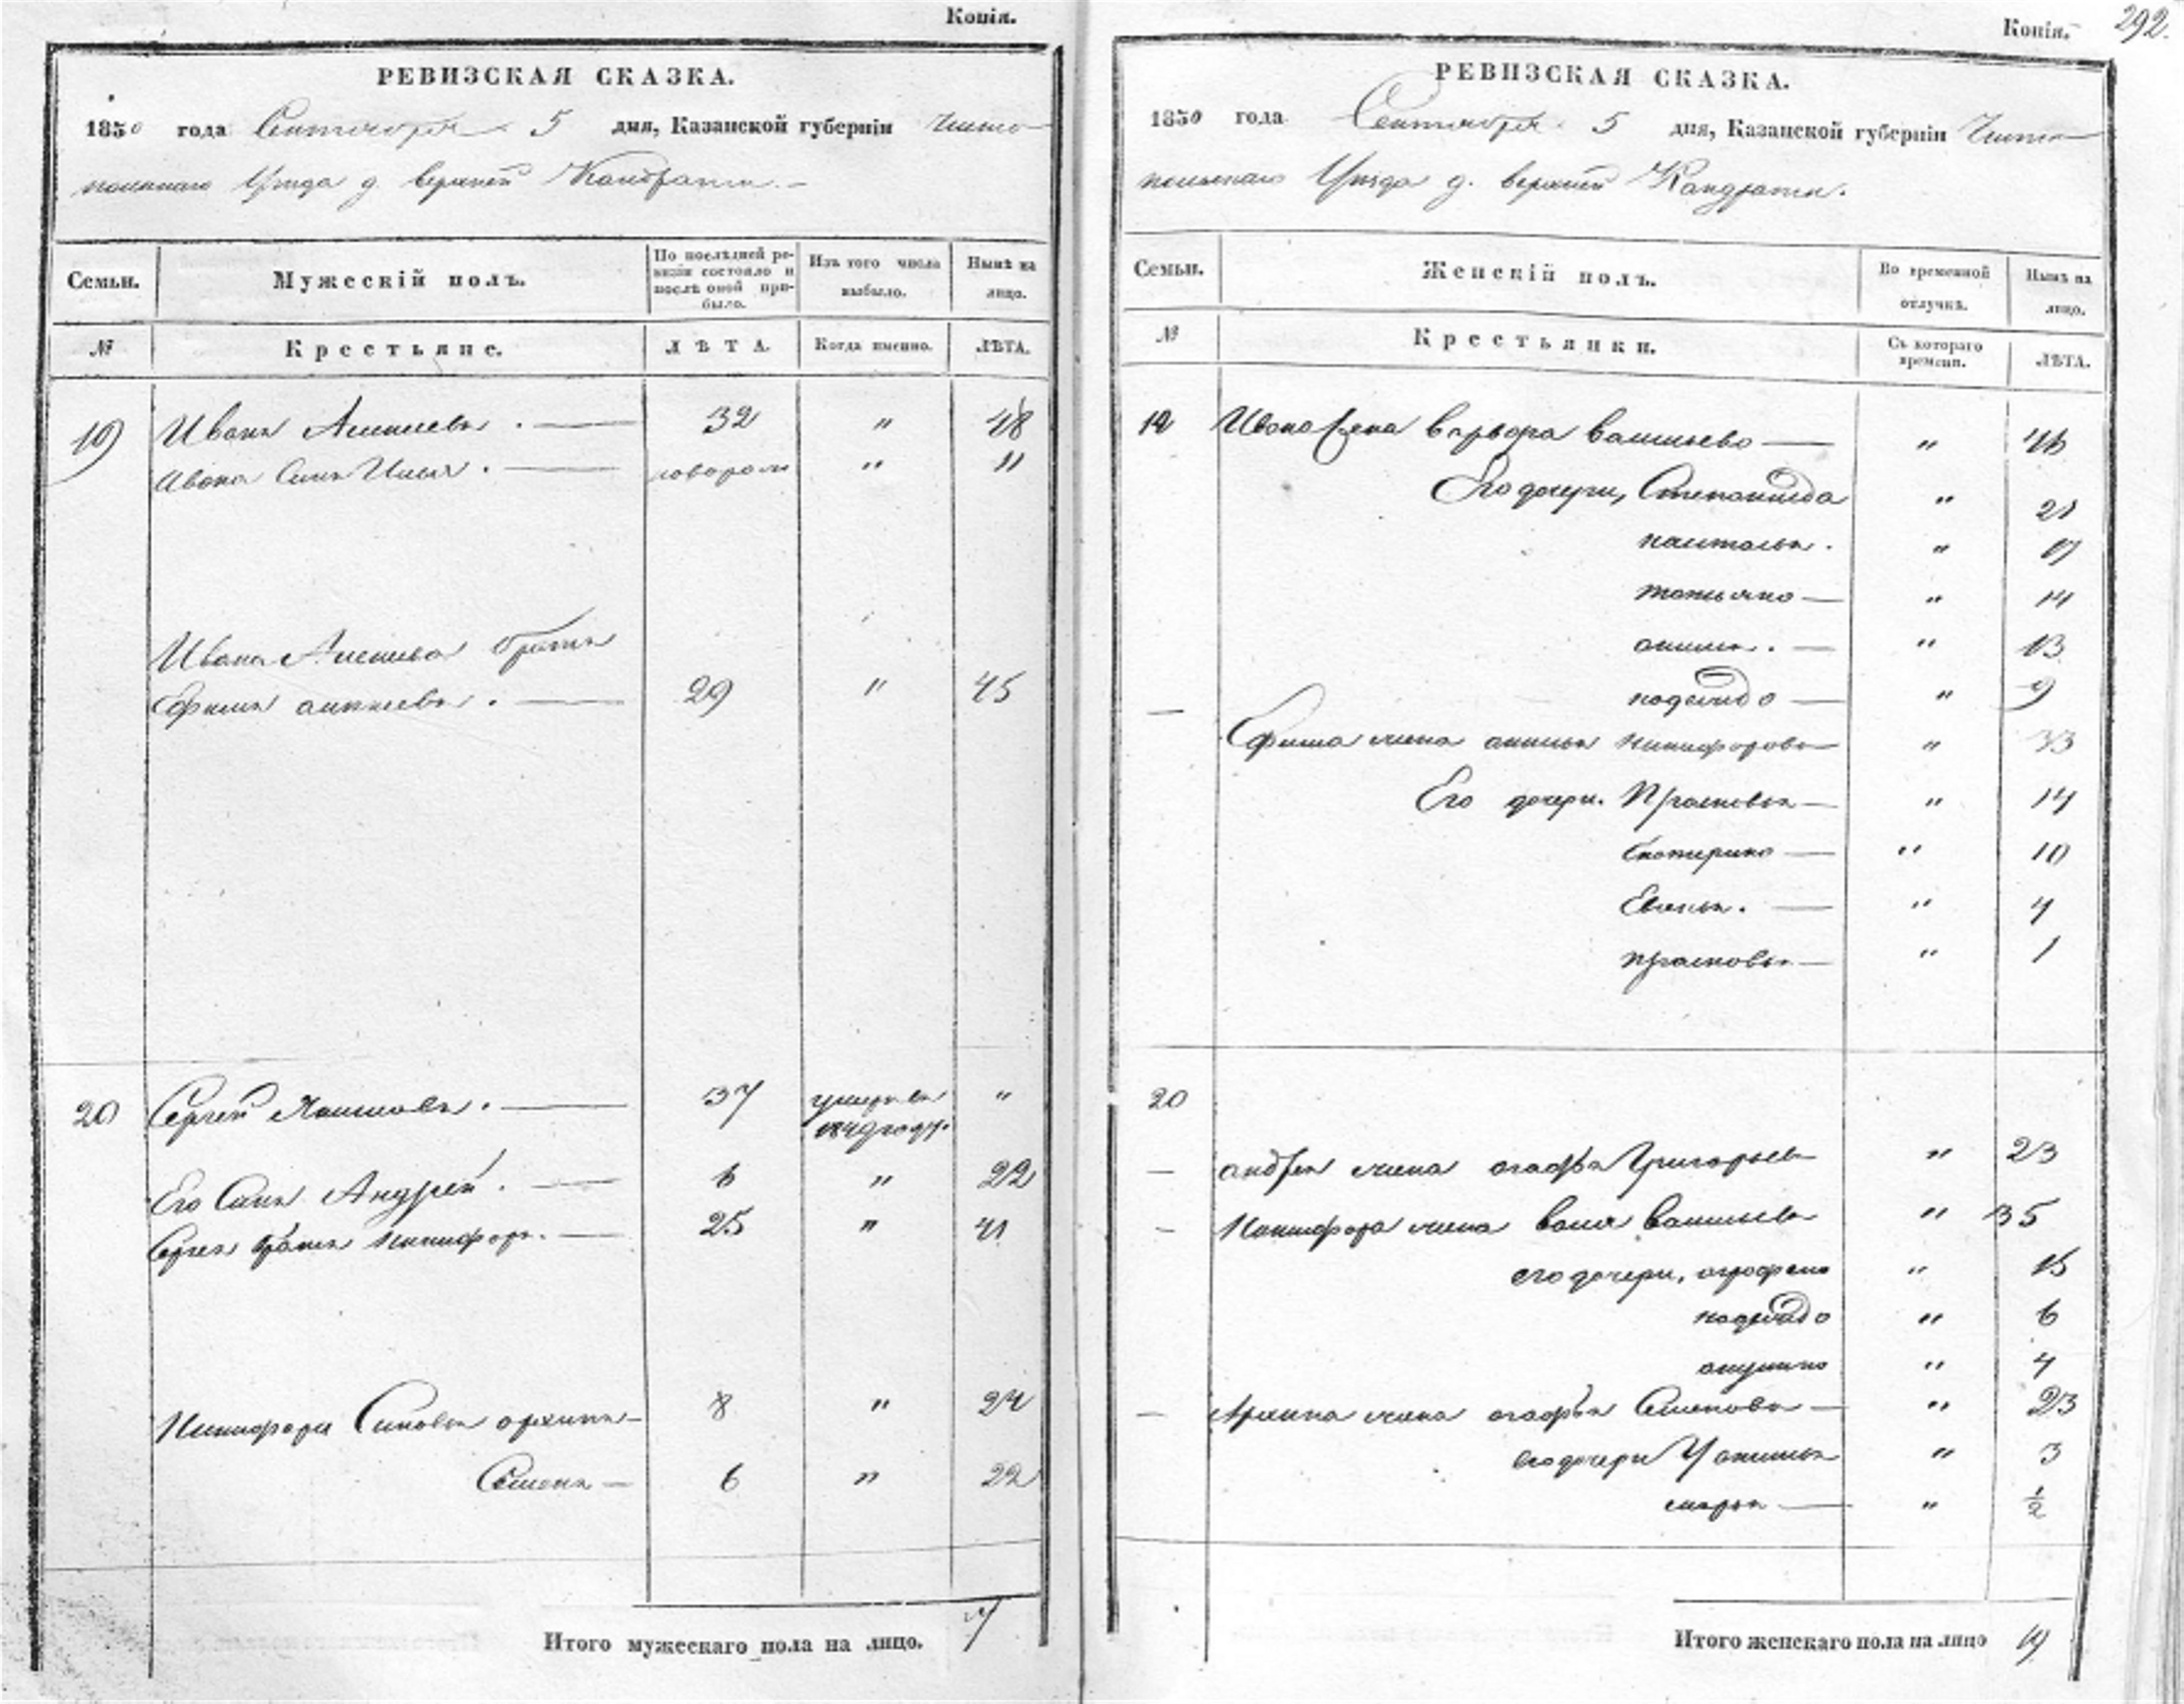 Копія.
РЕВИЗСКАЯ СКАЗКА.
1850 года Сентября 5 дня, Казанской губерніи Чисто
польскаго Уѣзда д. верхней Кондраты. -
Семьи. Мужескій полъ. По послѣдней ревизіи состояло и послѣ оной прибыло. Изъ того числа выбыло. Нынѣ на лицо.
№ Крестьяне. ЛѢТА. Когда именно. ЛѢТА.
19 Иванъ Алексѣевъ . — 32 " 48
Ивана Сынъ Илья . — " 11
Ивана Алексѣева братъ
Ефимъ алексѣевъ . — 29 " 45
20 Сергей . — 37 умеръ въ "
1849 году.
Его Сынъ Андрей . — 6 " 22
Сергея братъ Никифоръ . — 25 " 41
Никифора Сыновья архипъ — 8 " 24
Семенъ — 6 " 22
Итого мужескаго пола на лицо. 7
Копія. 292.
РЕВИЗСКАЯ СКАЗКА.
1850 года Сентября 5 дня, Казанской губерніи Чисто
польскаго Уѣзда д. верхней Кандраты.
Семьи. Женскій полъ. Во временной отлучкѣ. Нынѣ на лицо.
№ Крестьянки. Съ котораго времени. ЛѢТА.
19 Ивана жена варвара васильева — " 46
Его дочери, Степанида " 21
наталья . " 17
татьяна — " 14
анисья . — " 13
надежда — " 9
— Ефима жена анисья никифорова — " 33
Его дочери. Прасковья — " 14
Екатерина — " 10
. — " 4
прасковья — " 1
20
— андрея жена агафья Григорьева " 23
— Никифора жена васильева " 35
его дочери, аграфена " 15
надежда " 6
акулина " 4
— Архипа жена агафья Семенова — " 23
его дочери " 3
марья — " ½
Итого женскаго пола на лицо 19